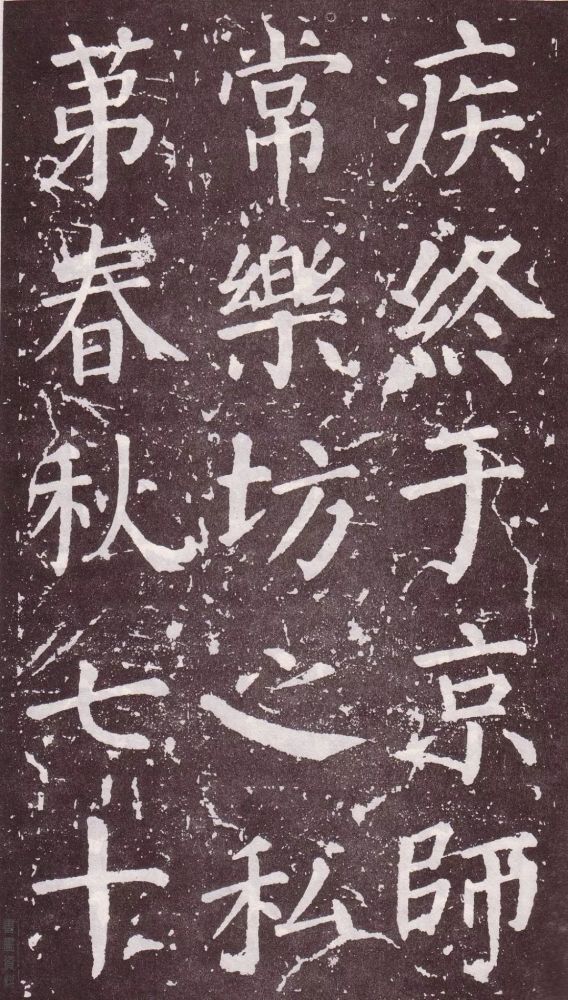 疾終于京師
常樂坊之私
苐春秋七十